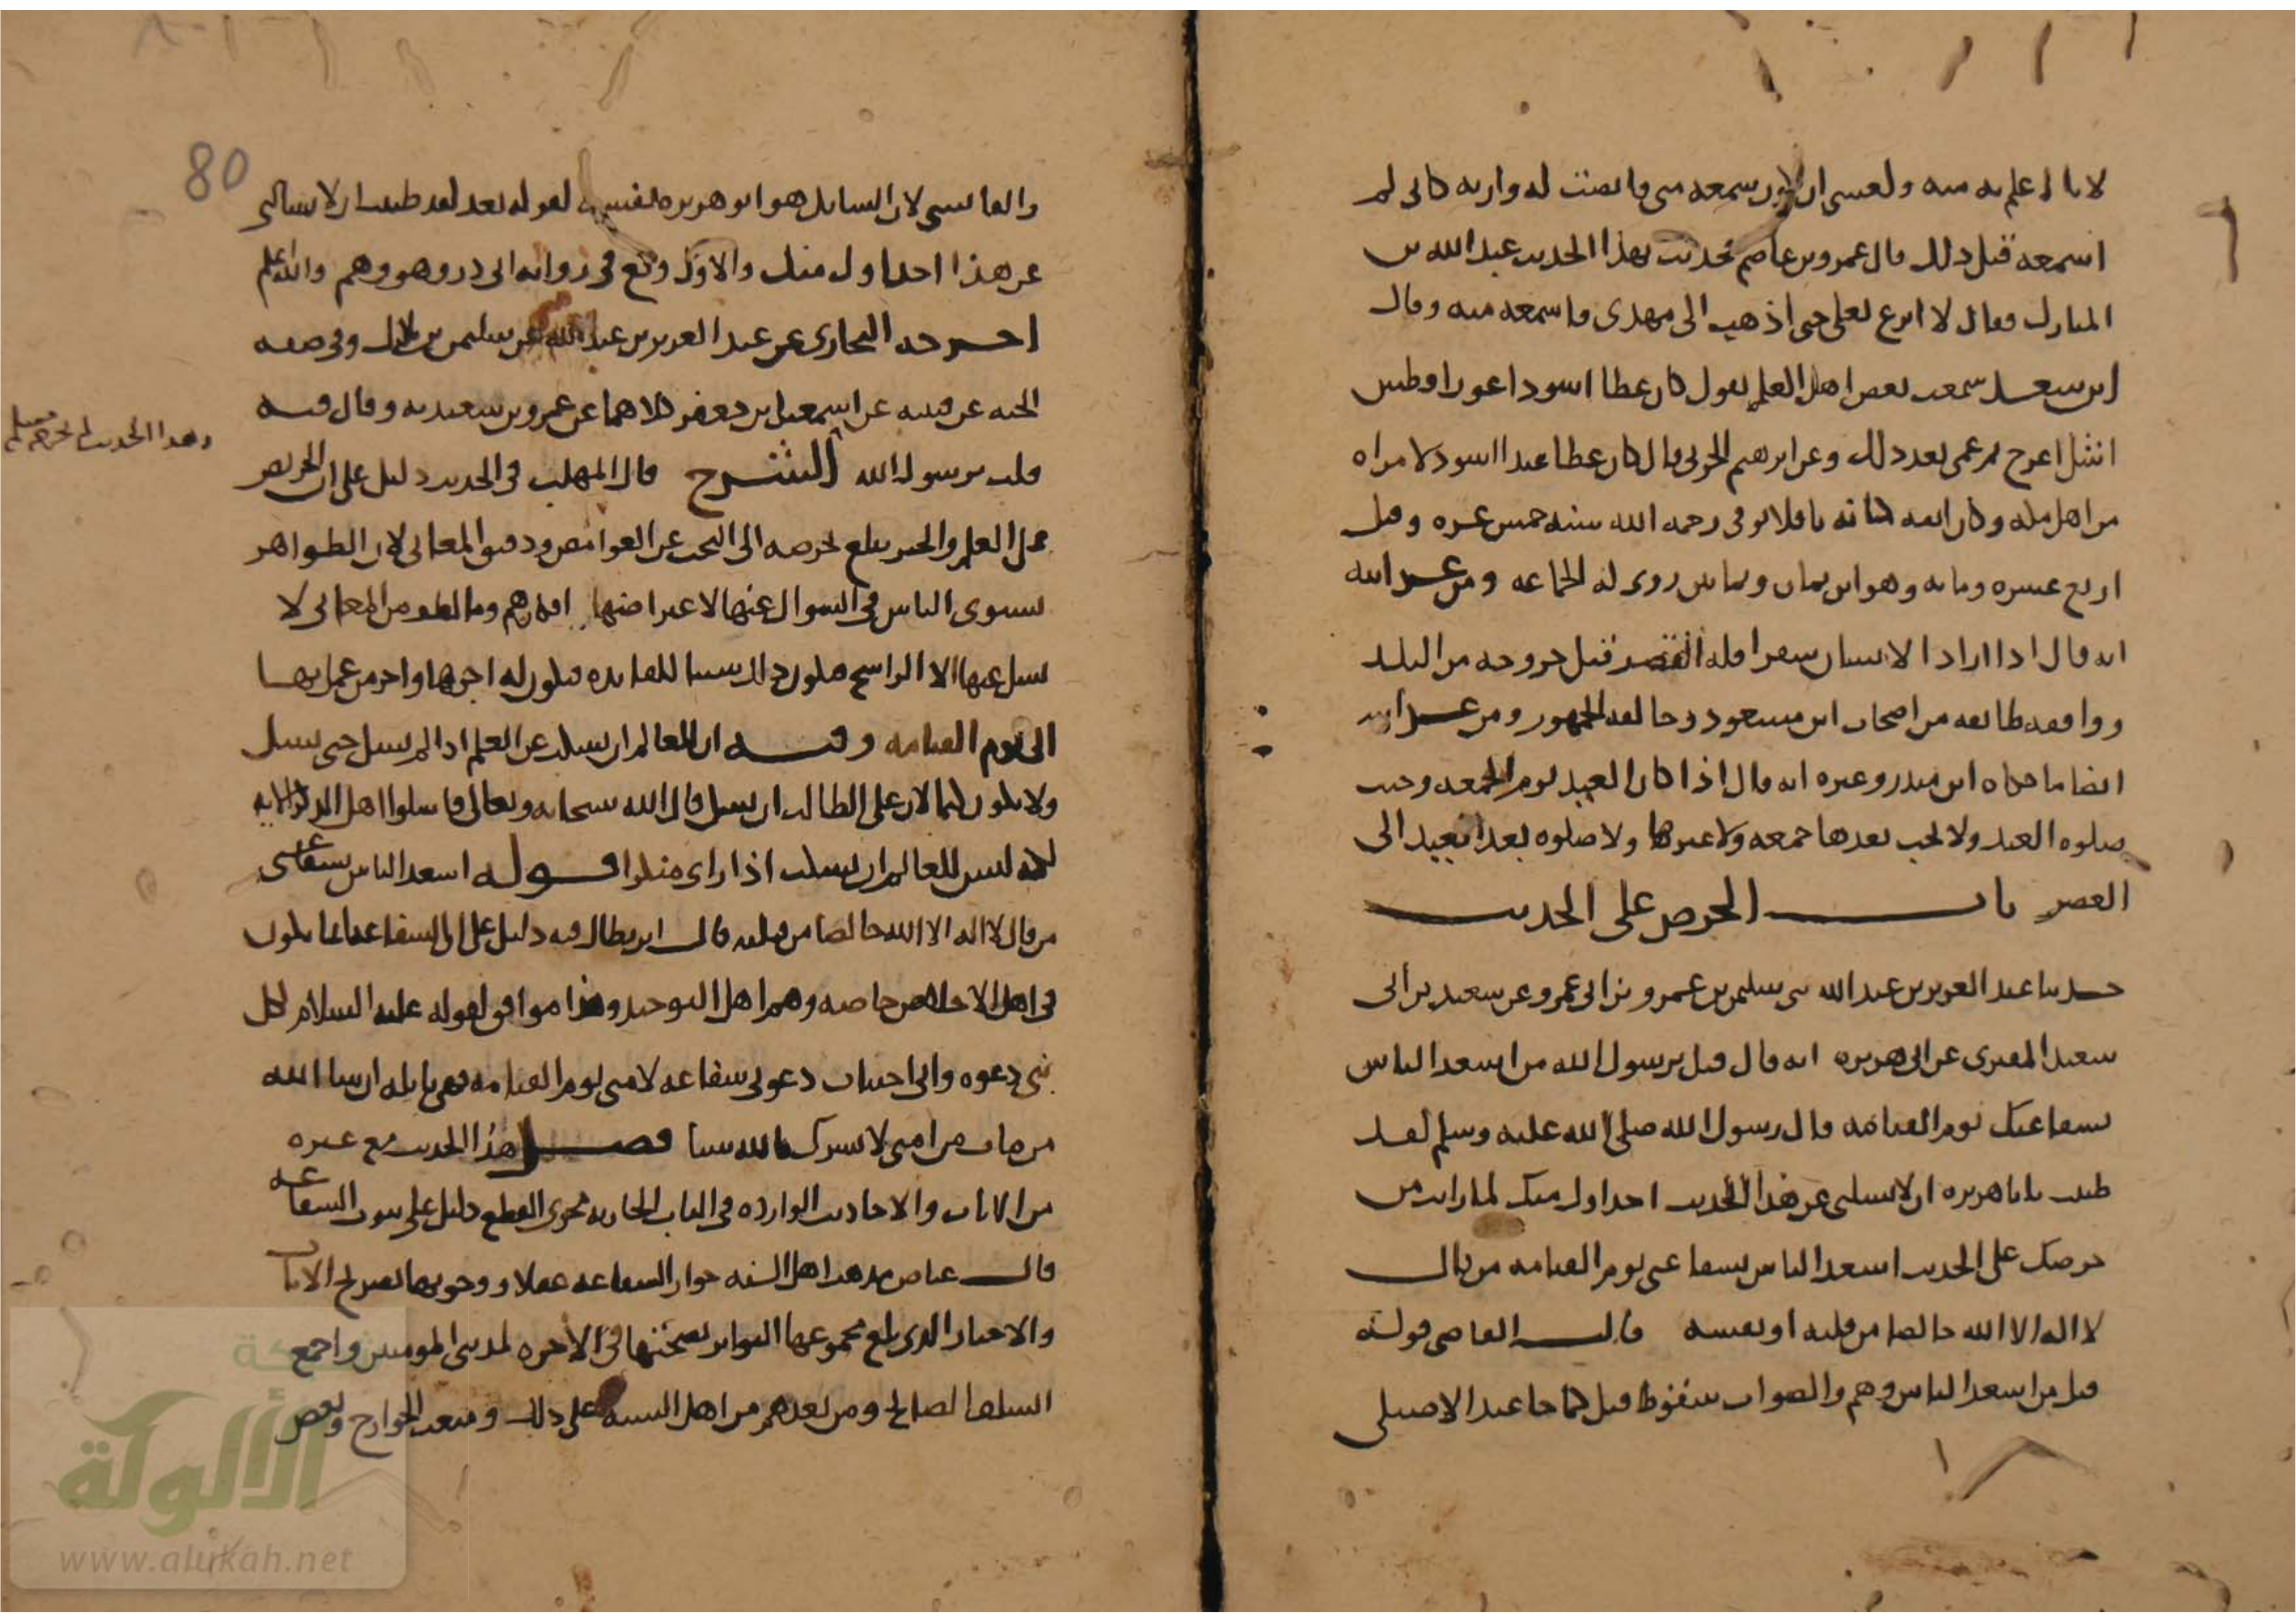 لانا اعلم به منه ولعسى ان اكون سمعه مني فانصت له واريه كاني لم
اسمعه قبل ذلك قال عمرو بن عاصم فحدثت بهذا الحديث عبد الله بن
المبارك فقال لا انزع نعلي حتى اذهب الى مهدي فاسمعه منه وقال
ابن سعد سمعت بعض اهل العلم يقول كان عطا اسود اعور افطس
اشل اعرج ثم عمى بعد ذلك وعن ابرهيم الحربي قال كان عطا عبدا اسود لامراه
من اهل مكه وكان انفه كانه باقلا توفي رحمه الله سنه خمس عشره وقيل
اربع عشره ومايه وهو ابن ثمان وثمانين روى له الجماعه ومن غرايبه
انه قال اذا اراد الانسان سفرا فله القصر قبل خروجه من البلد
ووافقه طايفه من اصحاب ابن مسعود وخالفه الجمهور ومن غرايبه
ايضا ما حكاه ابن منذر وغيره انه قال اذا كان العيد يوم الجمعه وجبت
صلوه العيد ولا يجب بعدها جمعه ولا غيرها ولا صلوه بعد العيد الى
العصر باب الحرص على الحديث
حدثنا عبد العزيز بن عبد الله ثنى سليمن بن عمرو بن ابي عمرو عن سعيد بن أبي
سعيد المقبري عن ابي هريره انه قال قيل يرسول الله من اسعد الناس
بشفاعتك يوم القيامه قال رسول الله صلى الله عليه وسلم لقد
ظننت يا با هريره ان لا يسلني عن هذا الحديث احد اول منك لما رايت من
حرصك على الحديث اسعد الناس بشفاعتي يوم القيامه من قال
لا اله الا الله خالصا من قلبه او نفسه قال القاضي قوله
قيل من اسعد الناس وهم والصواب سقوط قيل كما جا عند الاصيلي
80
والقابسي لان السايل هو ابو هريره نفسه لقوله بعد لقد ظننت ان لا يسالني
عن هذا احد اول منك والاول وقع في روايه ابي ذر وهو وهم والله اعلم
اخرجه البخاري عن عبد العزيز بن عبد الله عن سليمن بن بلال وفي صفه
الجنه عن قتيبه عن اسمعيل بن جعفر كلاهما عن عمرو بن سعيد به وقال فيه
وهذا الحديث لم يخرجه مسلم
قلت يرسول الله الشرح قال المهلب في الحديث دليل على ان الحريص
على العلم والخير يبلغ بحرصه الى البحث عن الغوامض ودقيق المعاني لان الظواهر
يستوى الناس في السوال عنها لاعتراضها افكارهم وما لطف من المعاني لا
يسل عنها الا الراسخ فيكون ذلك سببا للفايده فيكون له اجرها واجر من عمل بها
الى يوم القيامه وفيه ان للعالم ان يسكت عن العلم اذا لم يسل حتى يسل
ولا يكون كتما لان على الطالب ان يسل قال الله سبحانه وتعالى فاسلوا اهل الذكر الايه
لكنه ليس للعالم ان يسكت اذا راى منكرا قوله اسعد الناس بشفاعتي
من قال لا اله الا الله خالصا من قلبه قال ابن بطال فيه دليل على ان الشفاعه انما يكون
في اهل الاخلاص خاصه وهم اهل التوحيد وهذا موافق لقوله عليه السلام لكل
نبي دعوه واني اختبات دعوتي شفاعه لامتي يوم القيامه فهي نايله ان شا الله
من مات من امتي لا يشرك بالله شيا فصل هذا الحديث مع غيره
من الايات والاحاديث الوارده في الباب الجاريه مجرى القطع دليل على ثبوت الشفاعه
قال عياض مذهب اهل السنه جواز الشفاعه عقلا ووجوبها بصريح الايات
والاخبار الذي بلغ مجموعها التواتر بصحتها في الاخره لمذنبي المومنين واجمع
السلف الصالح ومن بعدهم من اهل السنه على ذلك ومنعت الخوارج وبعض
شبكة
الألوكة
www.alukah.net